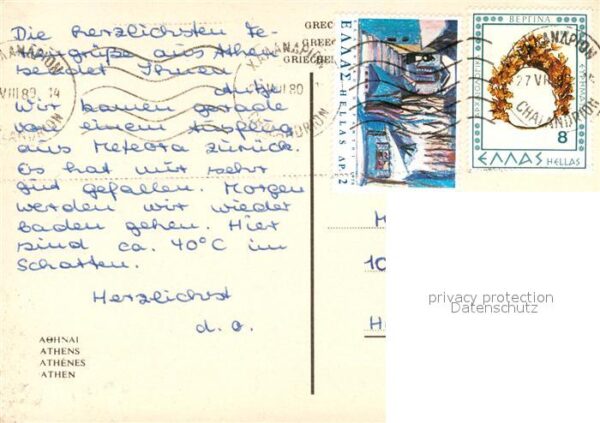 Die herzlichsten Fe-
riengrüße aus Athen
sendet Ihnen
Antje
Wir kamen gerade
von einem Ausflug
aus Meteora zurück.
Es hat mir sehr
gut gefallen. Morgen
werden wir wieder
baden gehen. Hier
sind ca. 40°C im
Schatten.
Herzlichst
d. O.
ΑΘΗΝΑΙ
ATHENS
ATHÈNES
ATHEN
GREC
GREEC
GRIECHE
ΧΑΛΑΝΔΡΙΟΝ
VIII 80. 14
CHALANDRION
ΧΑΛΑΝΔΡΙΟΝ
VIII 80
CHALANDRION
ΕΛΛΑΣ-HELLAS ΔΡ. 2
ΒΕΡΓΙΝΑ
ΧΑΛΑΝΔΡΙΟΝ
27 VIII 80
CHALANDRION
8
ΕΛΛΑΣ HELLAS
10
H
privacy protection
Datenschutz